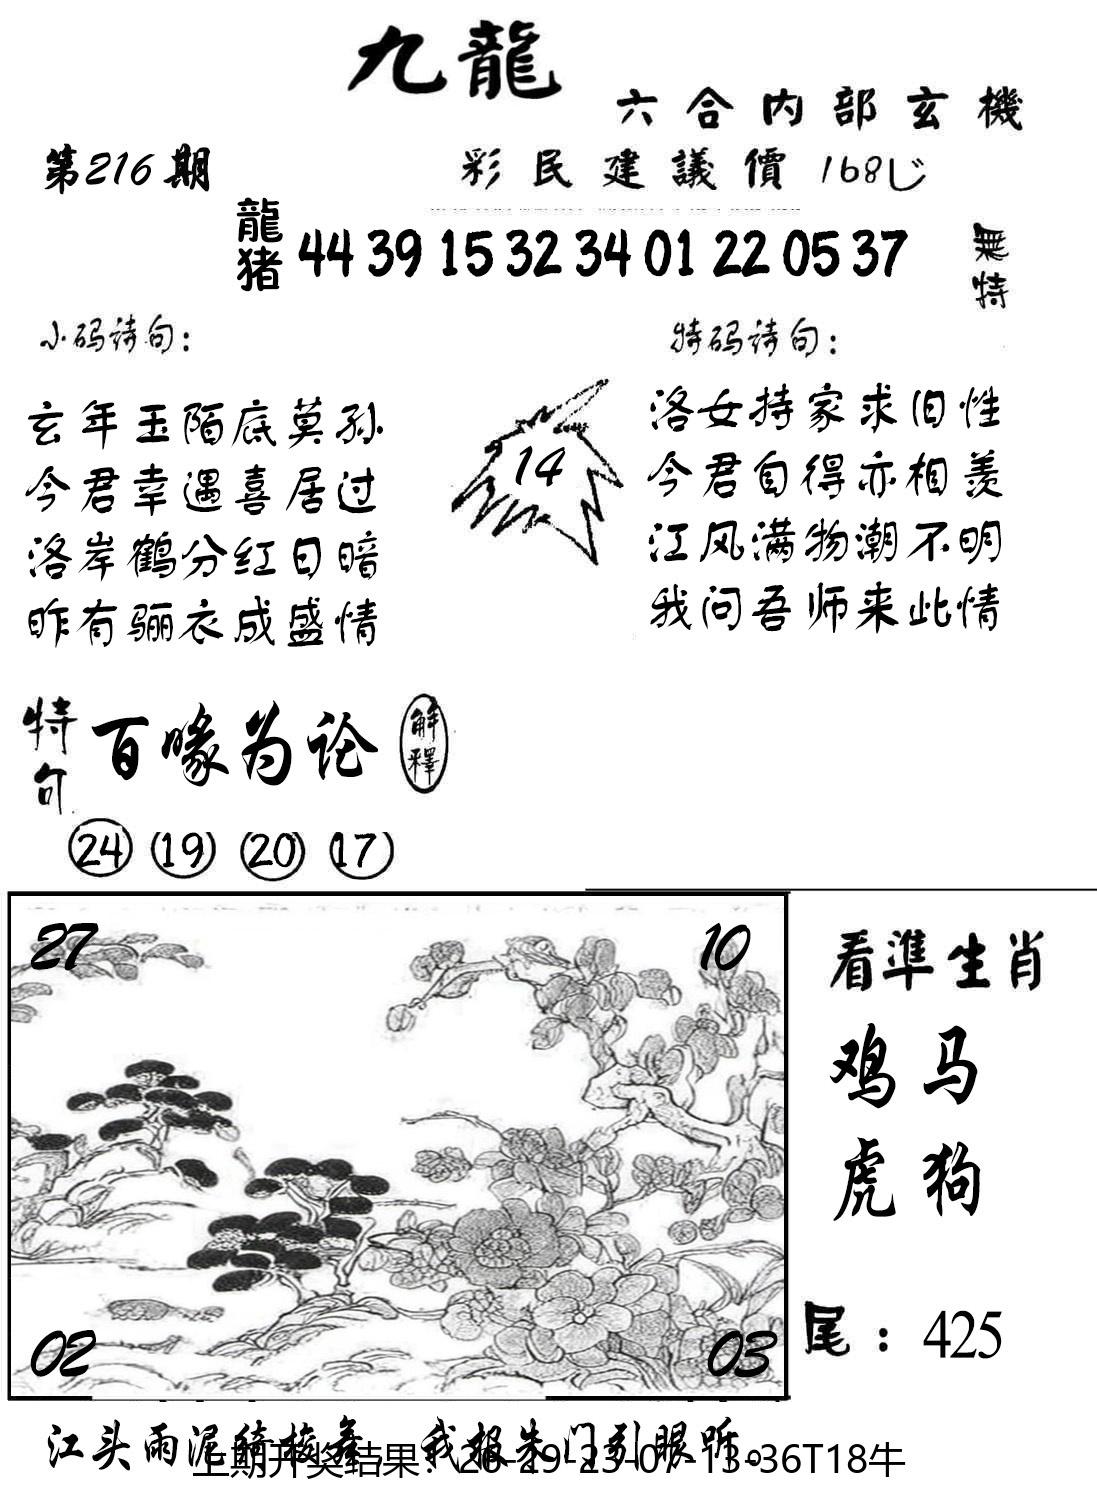 九龍
六合内部玄機
第216期
彩民建議價 168
龍猪
44 39 15 32 34 01 22 05 37
無特
小码诗句：
玄年玉陌底莫孙
今君幸遇喜居过
洛岸鹤分红日暗
昨有骊衣成盛情
14
特码诗句：
洛女持家求旧性
今君自得亦相羡
江风满物潮不明
我问吾师来此情
特句
百喙为论
解釋
24 19 20 17
27
10
02
03
看準生肖
鸡马
虎狗
尾：425
江头雨泥 我报朱门引眼听。
上期开奖结果：26-29-23-07-13-36T18牛